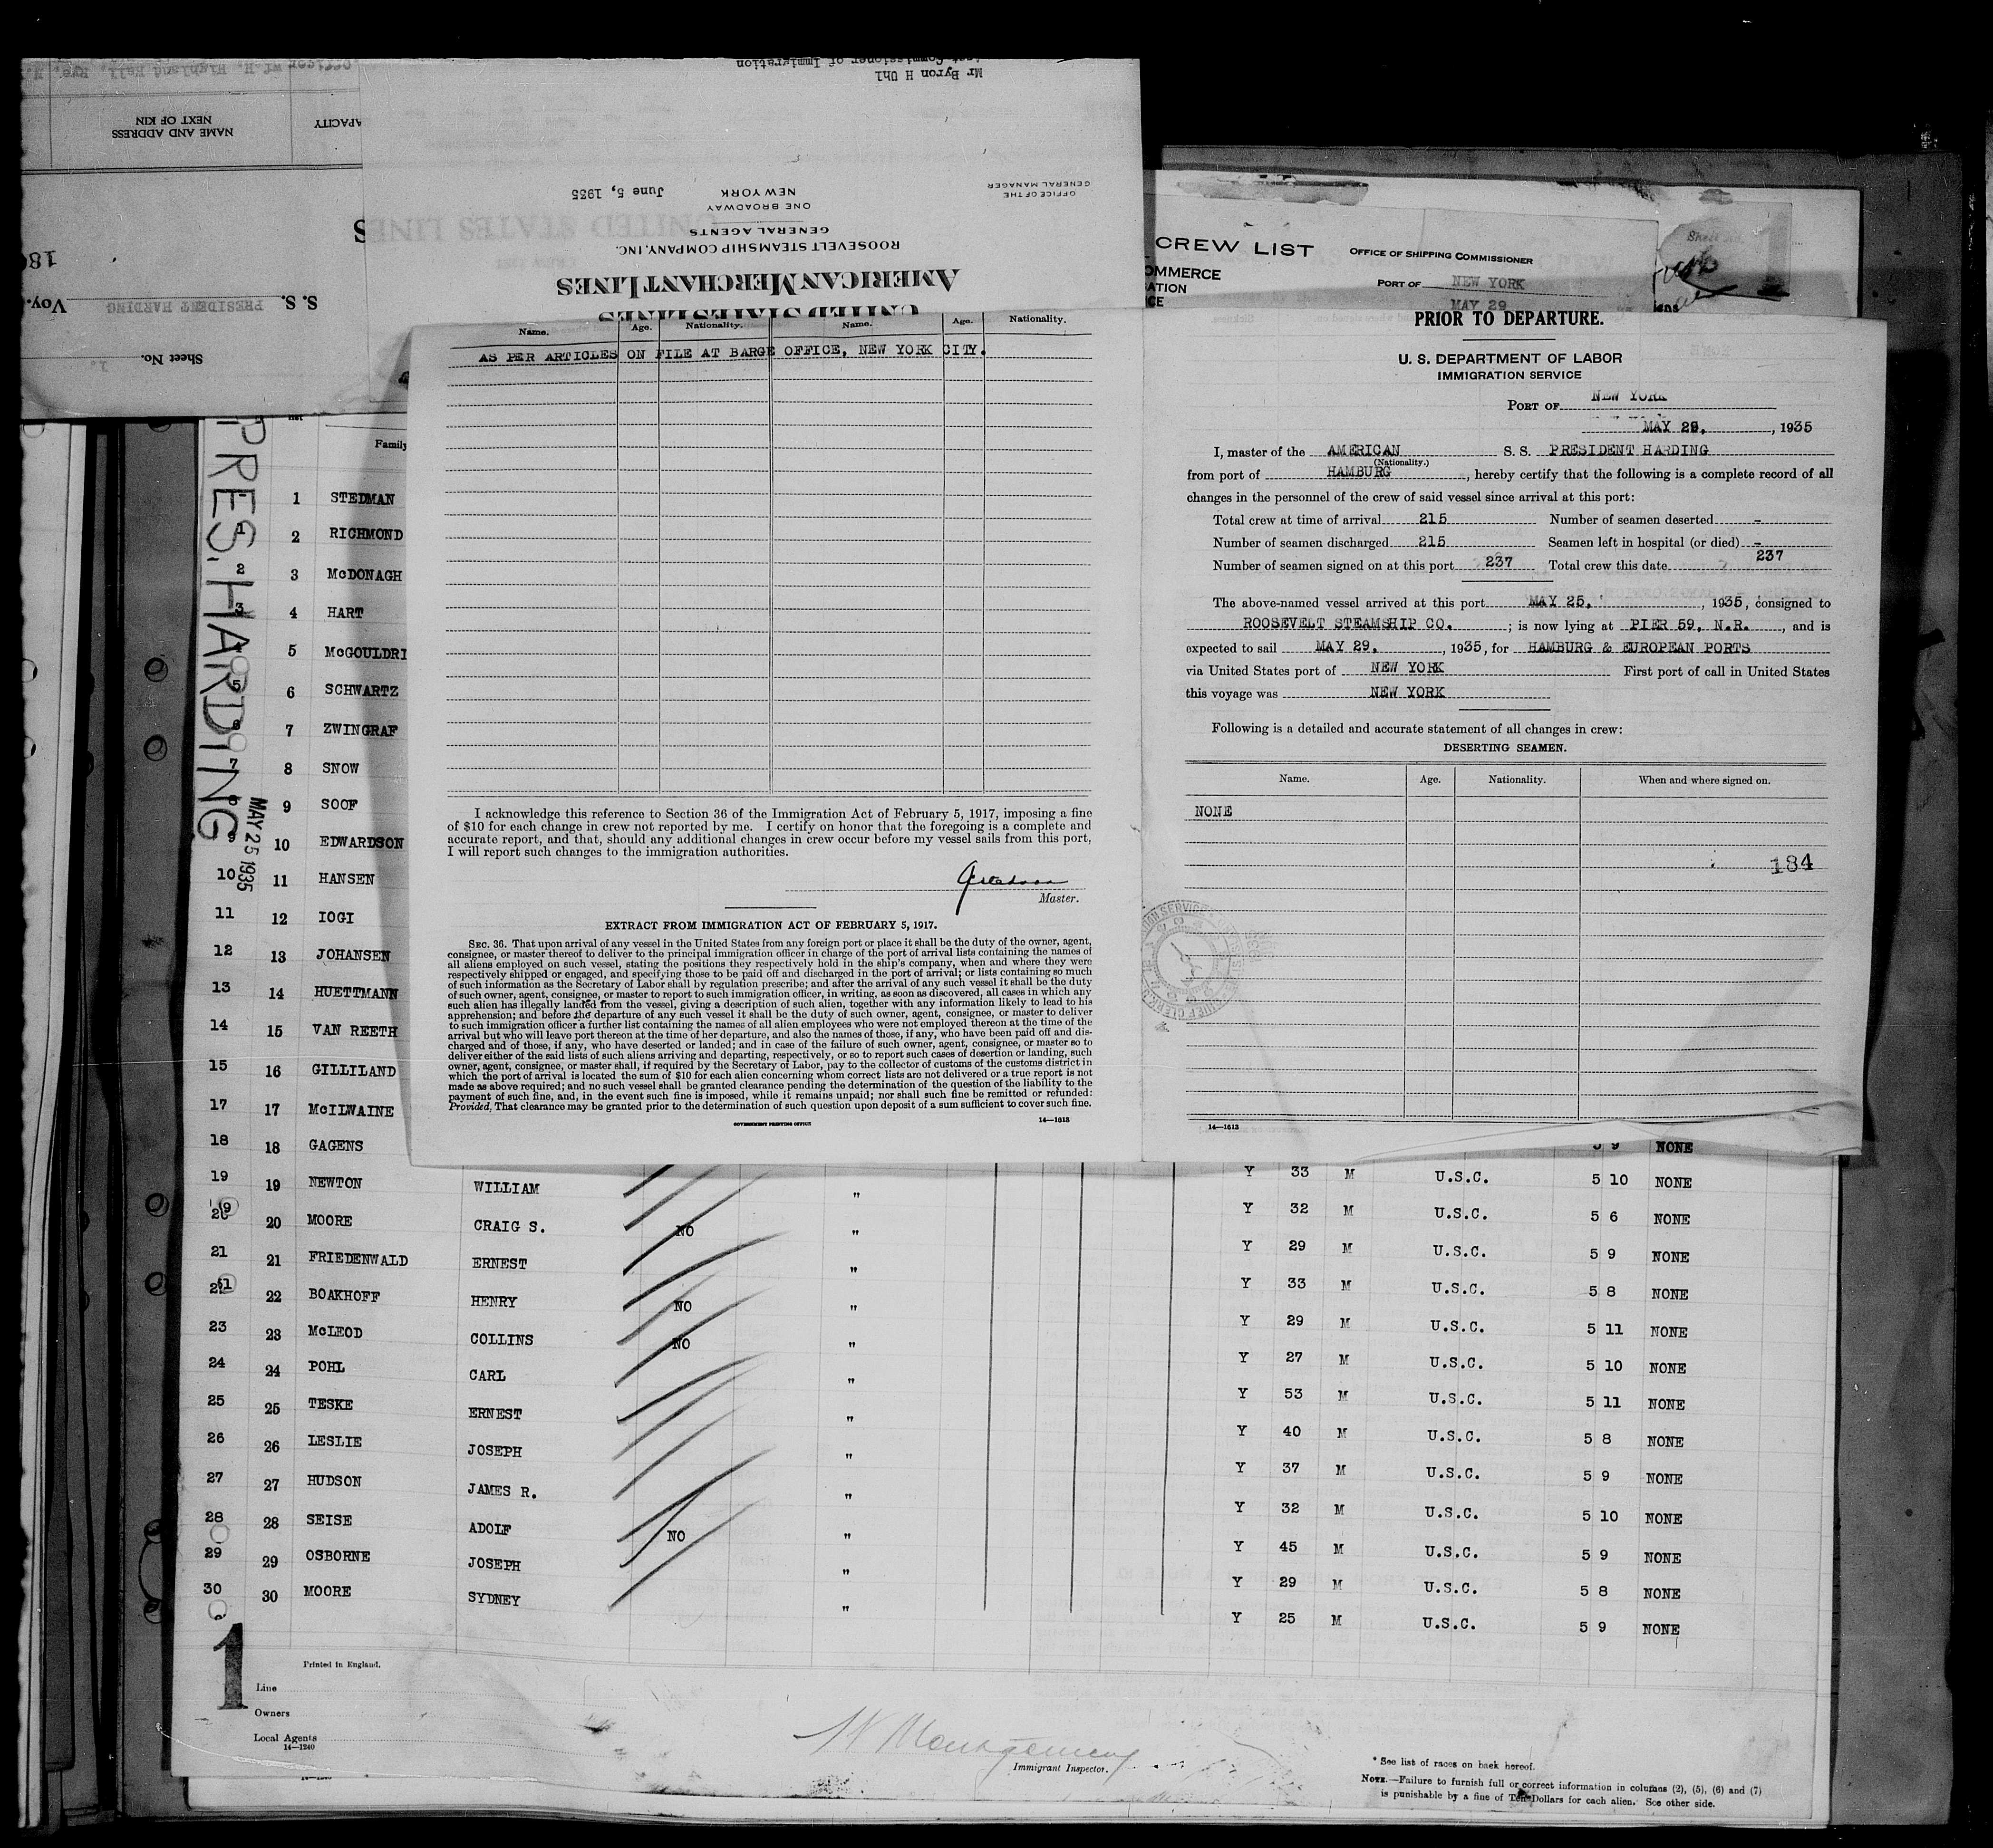 Officer Wf.H. Highland Hall, Rye, N.
NAME AND ADDRESS
NEXT OF KIN
APACITY
Voy.
S. S. PRESIDENT HARDING
Sheet No. 1.
Mr Byron H Uhl
Commissioner of Immigration
OFFICE OF THE
GENERAL MANAGER
June 5, 1935
UNITED STATES LINES
AMERICAN MERCHANT LINES
ROOSEVELT STEAMSHIP COMPANY, INC.
GENERAL AGENTS
ONE BROADWAY
NEW YORK
CREW LIST
OMMERCE
ATION
CE
OFFICE OF SHIPPING COMMISSIONER
PORT OF NEW YORK
MAY 29
Name. Age. Nationality. Name. Age. Nationality.
AS PER ARTICLES ON FILE AT BARGE OFFICE, NEW YORK CITY.
I acknowledge this reference to Section 36 of the Immigration Act of February 5, 1917, imposing a fine
of $10 for each change in crew not reported by me. I certify on honor that the foregoing is a complete and
accurate report, and that, should any additional changes in crew occur before my vessel sails from this port,
I will report such changes to the immigration authorities.
Master.
EXTRACT FROM IMMIGRATION ACT OF FEBRUARY 5, 1917.
SEC. 36. That upon arrival of any vessel in the United States from any foreign port or place it shall be the duty of the owner, agent,
consignee, or master thereof to deliver to the principal immigration officer in charge of the port of arrival lists containing the names of
all aliens employed on such vessel, stating the positions they respectively hold in the ship's company, when and where they were
respectively shipped or engaged, and specifying those to be paid off and discharged in the port of arrival; or lists containing so much
of such information as the Secretary of Labor shall by regulation prescribe; and after the arrival of any such vessel it shall be the duty
of such owner, agent, consignee, or master to report to such immigration officer, in writing, as soon as discovered, all cases in which any
such alien has illegally landed from the vessel, giving a description of such alien, together with any information likely to lead to his
apprehension; and before the departure of any such vessel it shall be the duty of such owner, agent, consignee, or master to deliver
to such immigration officer a further list containing the names of all alien employees who were not employed thereon at the time of the
arrival but who will leave port thereon at the time of her departure, and also the names of those, if any, who have been paid off and dis-
charged and of those, if any, who have deserted or landed; and in case of the failure of such owner, agent, consignee, or master so to
deliver either of the said lists of such aliens arriving and departing, respectively, or so to report such cases of desertion or landing, such
owner, agent, consignee, or master shall, if required by the Secretary of Labor, pay to the collector of customs of the customs district in
which the port of arrival is located the sum of $10 for each alien concerning whom correct lists are not delivered or a true report is not
made as above required; and no such vessel shall be granted clearance pending the determination of the question of the liability to the
payment of such fine, and, in the event such fine is imposed, while it remains unpaid; nor shall such fine be remitted or refunded:
Provided, That clearance may be granted prior to the determination of such question upon deposit of a sum sufficient to cover such fine.
GOVERNMENT PRINTING OFFICE 14—1613
PRIOR TO DEPARTURE.
U. S. DEPARTMENT OF LABOR
IMMIGRATION SERVICE
PORT OF NEW YORK
MAY 29, , 1935
I, master of the AMERICAN S. S. PRESIDENT HARDING
(Nationality.)
from port of HAMBURG , hereby certify that the following is a complete record of all
changes in the personnel of the crew of said vessel since arrival at this port:
Total crew at time of arrival 215 Number of seamen deserted -
Number of seamen discharged 215 Seamen left in hospital (or died) -
Number of seamen signed on at this port 237 Total crew this date 237
The above-named vessel arrived at this port MAY 25, , 1935, consigned to
ROOSEVELT STEAMSHIP CO. ; is now lying at PIER 59, N.R. , and is
expected to sail MAY 29, , 1935, for HAMBURG & EUROPEAN PORTS
via United States port of NEW YORK First port of call in United States
this voyage was NEW YORK
Following is a detailed and accurate statement of all changes in crew:
DESERTING SEAMEN.
Name. Age. Nationality. When and where signed on.
NONE
184
14—1613
PRES. HARDING
MAY 25 1935
Family
1 STEDMAN
1 2 RICHMOND
2 3 McDONAGH
3 4 HART
4 5 McGOULDRI
5 6 SCHWARTZ
6 7 ZWINGRAF
7 8 SNOW
8 9 SOOF
9 10 EDWARDSON
10 11 HANSEN
11 12 IOGI
12 13 JOHANSEN
13 14 HUETTMANN
14 15 VAN REETH
15 16 GILLILAND
17 17 McILWAINE
18 18 GAGENS 5 9 NONE
19 19 NEWTON WILLIAM " Y 33 M U.S.C. 5 10 NONE
20 20 MOORE CRAIG S. NO " Y 32 M U.S.C. 5 6 NONE
21 21 FRIEDENWALD ERNEST " Y 29 M U.S.C. 5 9 NONE
22 BOAKHOFF HENRY NO " Y 33 M U.S.C. 5 8 NONE
23 23 McLEOD COLLINS NO " Y 29 M U.S.C. 5 11 NONE
24 24 POHL CARL " Y 27 M U.S.C. 5 10 NONE
25 25 TESKE ERNEST " Y 53 M U.S.C. 5 11 NONE
26 26 LESLIE JOSEPH " Y 40 M U.S.C. 5 8 NONE
27 27 HUDSON JAMES R. " Y 37 M U.S.C. 5 9 NONE
28 28 SEISE ADOLF NO " Y 32 M U.S.C. 5 10 NONE
29 29 OSBORNE JOSEPH " Y 45 M U.S.C. 5 9 NONE
30 30 MOORE SYDNEY " Y 29 M U.S.C. 5 8 NONE
Y 25 M U.S.C. 5 9 NONE
1
Printed in England.
Line
Owners
Local Agents
14—1240
Immigrant Inspector.
* See list of races on back hereof.
NOTE.—Failure to furnish full or correct information in columns (2), (5), (6) and (7)
is punishable by a fine of Ten Dollars for each alien. See other side.